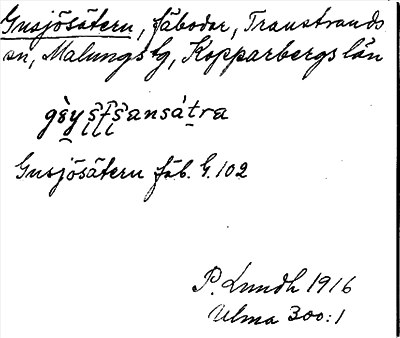 Gusjösätern, fäbodar, Transtrands
sn, Malungs tg, Kopparbergs län
Gusjösätern fäb. G. 102
P. Lundh 1916
Ulma 300:1